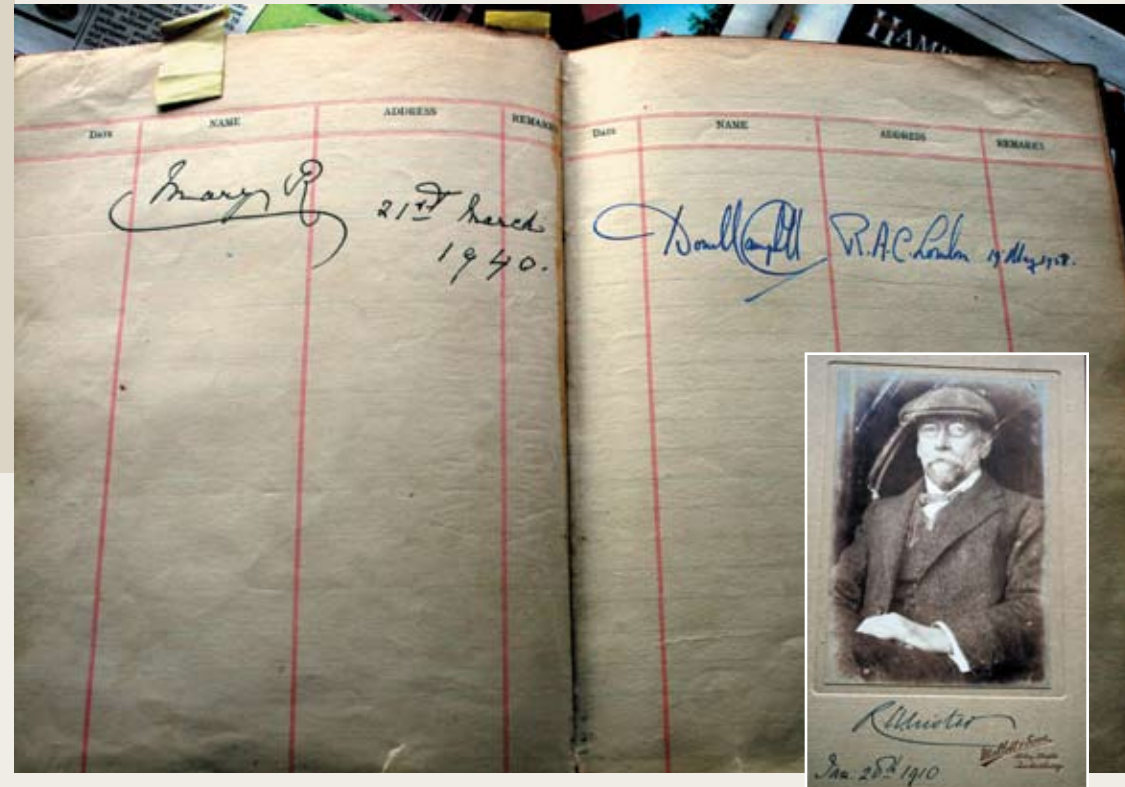 HAM
Date NAME ADDRESS REMARKS
Mary R 21st March
1940.
Date NAME ADDRESS REMARKS
Donald Campbell R.A.C. London 19 May 1958.
Jan: 28th 1910